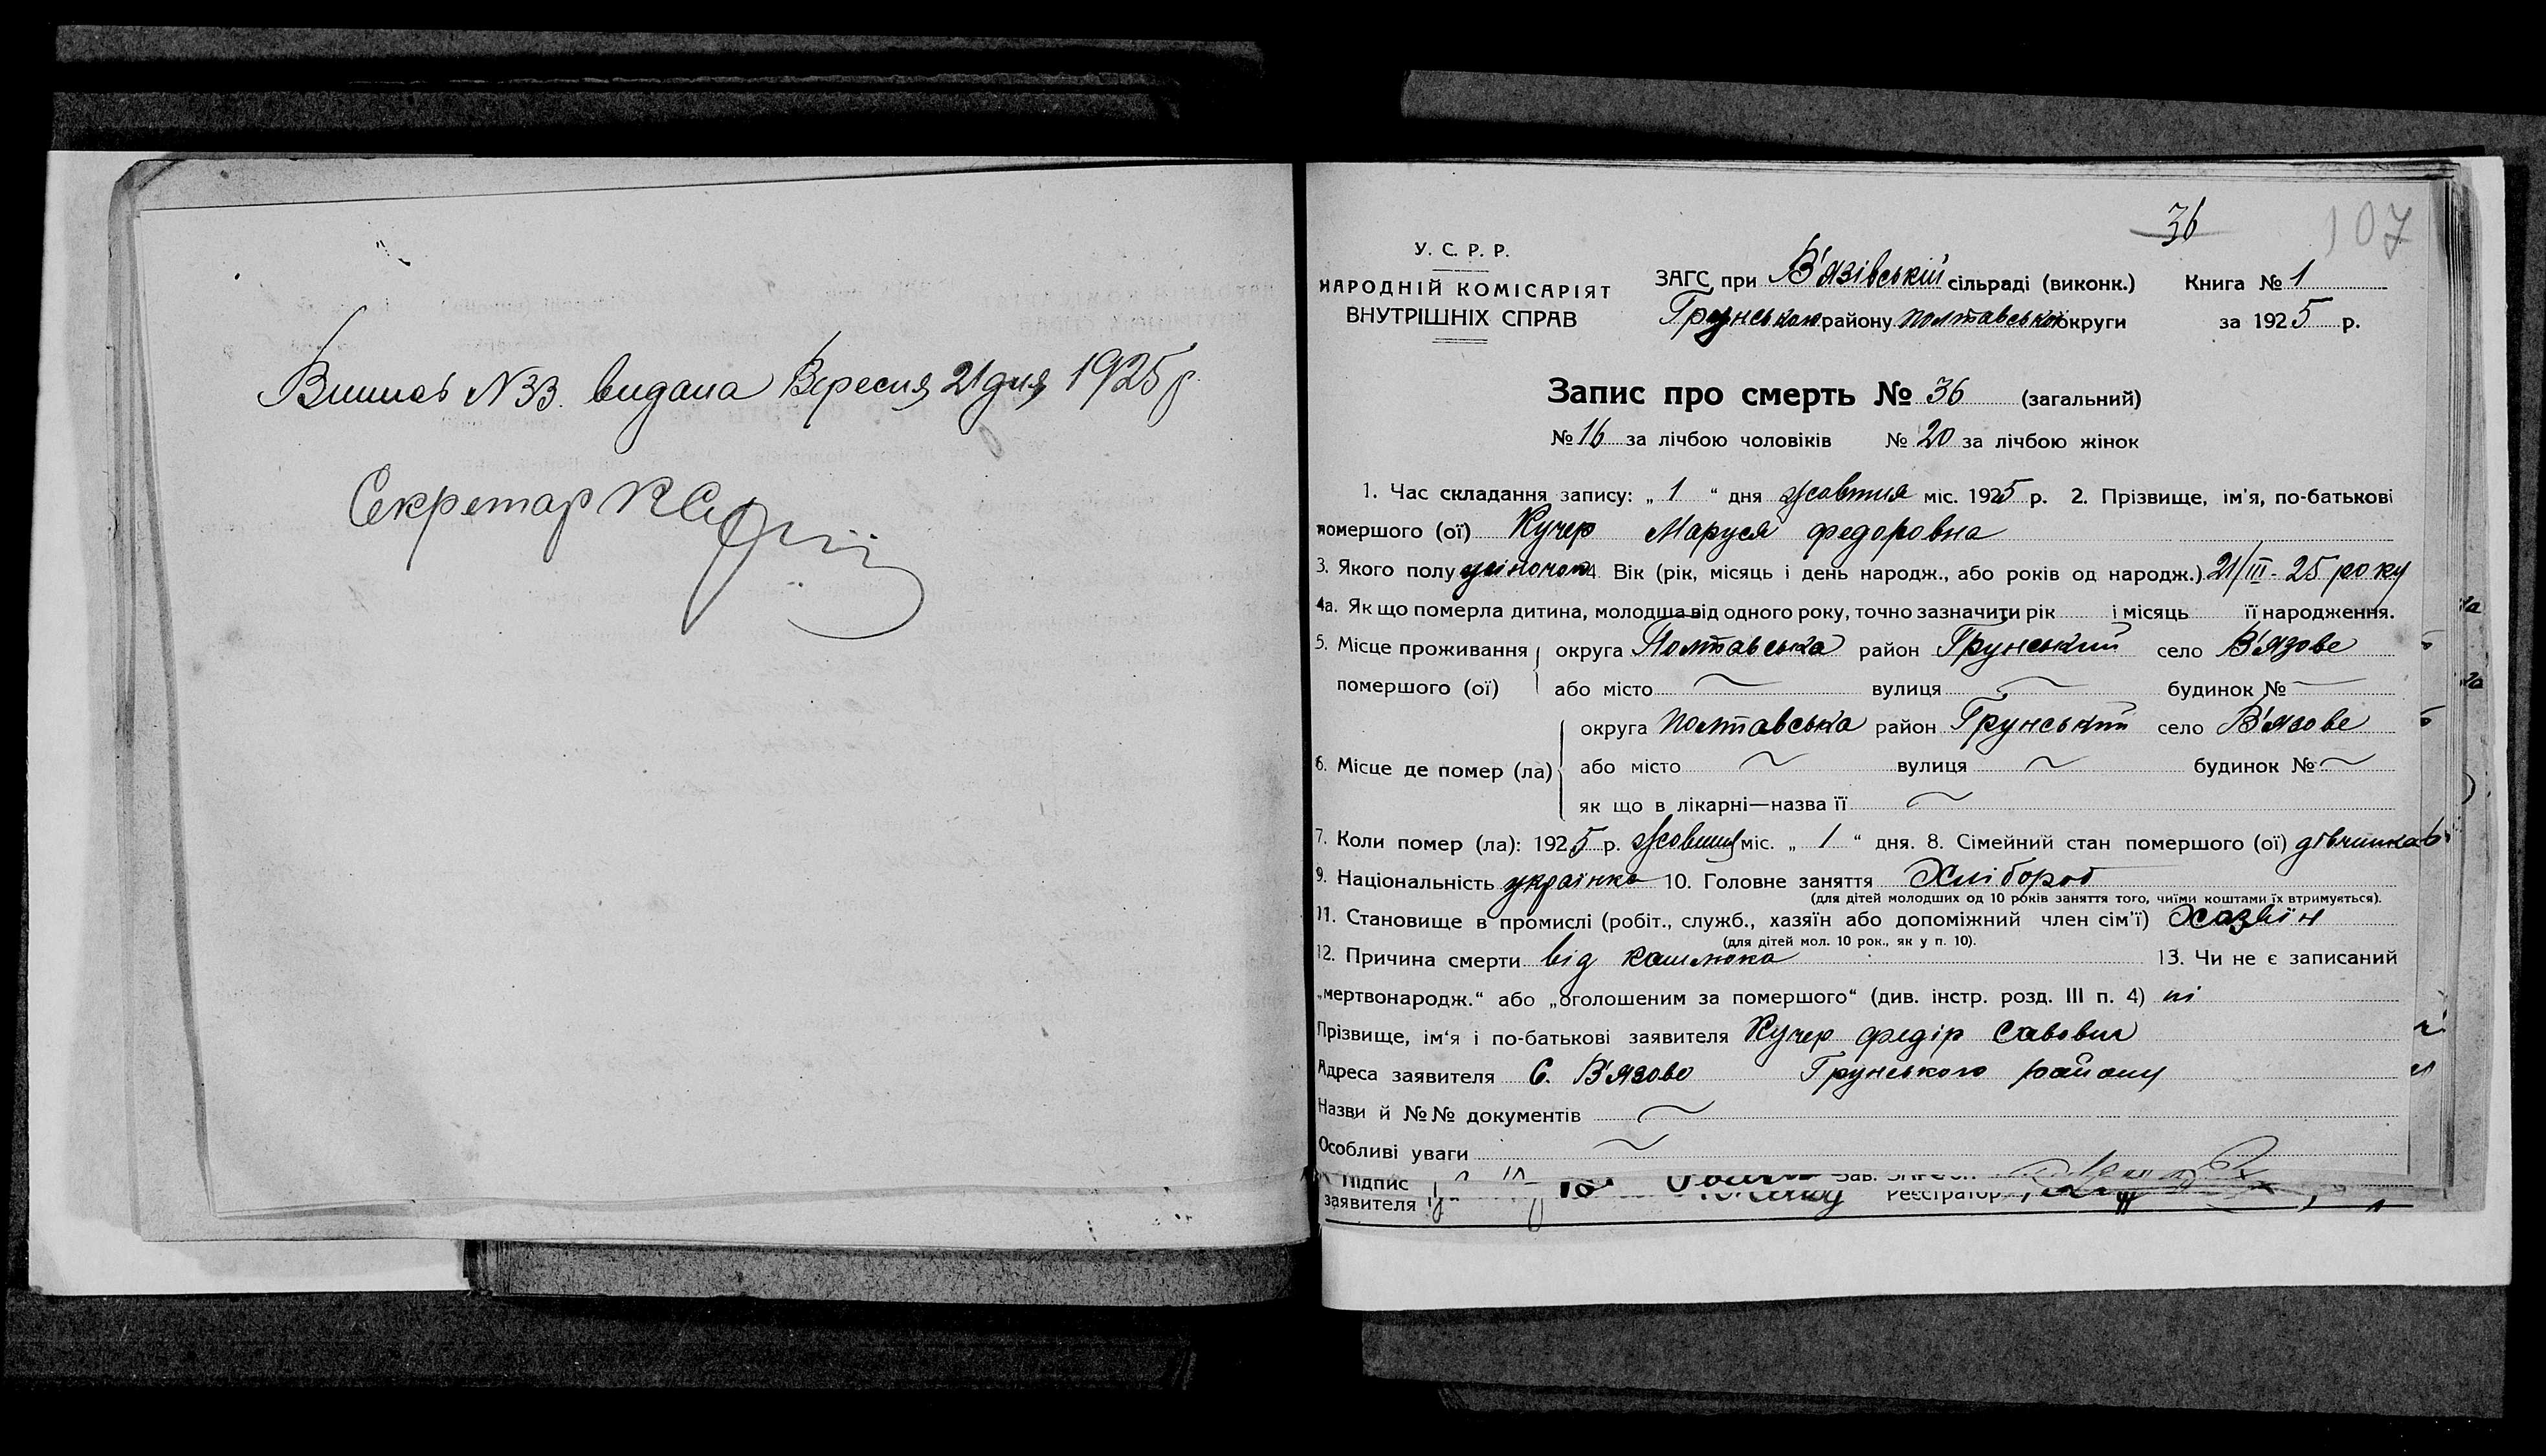 Випись N 33. видана Вересня 21 дня 1925 р.
Секретар
36
107
У. С. Р. Р.
НАРОДНІЙ КОМІСАРІЯТ
ВНУТРІШНІХ СПРАВ
ЗАГС при В'язівській сільраді (виконк.) Книга № 1
Грунського району Полтавської округи за 1925 р.
Запис про смерть № 36 (загальний)
№ 16 за лічбою чоловіків № 20 за лічбою жінок
1. Час складання запису: „ 1 “ дня жовтня міс. 1925 р. 2. Прізвище, ім'я, по-батькові
помершого (ої) Кучер Маруся Федоровна
3. Якого полу жіночого 4. Вік (рік, місяць і день народж., або років од народж.) 21/III - 25 року
4а. Як що померла дитина, молодша від одного року, точно зазначити рік і місяць її народження.
5. Місце проживання округа Полтавська район Грунський село В'язове
помершого (ої) або місто вулиця будинок №
округа Полтавська район Грунський село В'язове
6. Місце де помер (ла) або місто вулиця будинок №
як що в лікарні—назва її
7. Коли помер (ла): 1925 р. жовтня міс. „ 1 “ дня. 8. Сімейний стан помершого (ої) дівчинка
9. Національність українка 10. Головне заняття Хлібороб
(для дітей молодших од 10 років заняття того, чиїми коштами їх втримується).
11. Становище в промислі (робіт., служб., хазяїн або допоміжний член сім'ї) Хазяїн
(для дітей мол. 10 рок., як у п. 10).
12. Причина смерти від кашлюка 13. Чи не є записаний
„мертвонародж.“ або „оголошеним за помершого“ (див. інстр. розд. III п. 4) ні
Прізвище, ім'я і по-батькові заявителя Кучер Федір Савович
Адреса заявителя С. В'язове Грунського району
Назви й №№ документів
Особливі уваги
Підпис Зав. ЗАГС'ом
заявителя Реєстратор